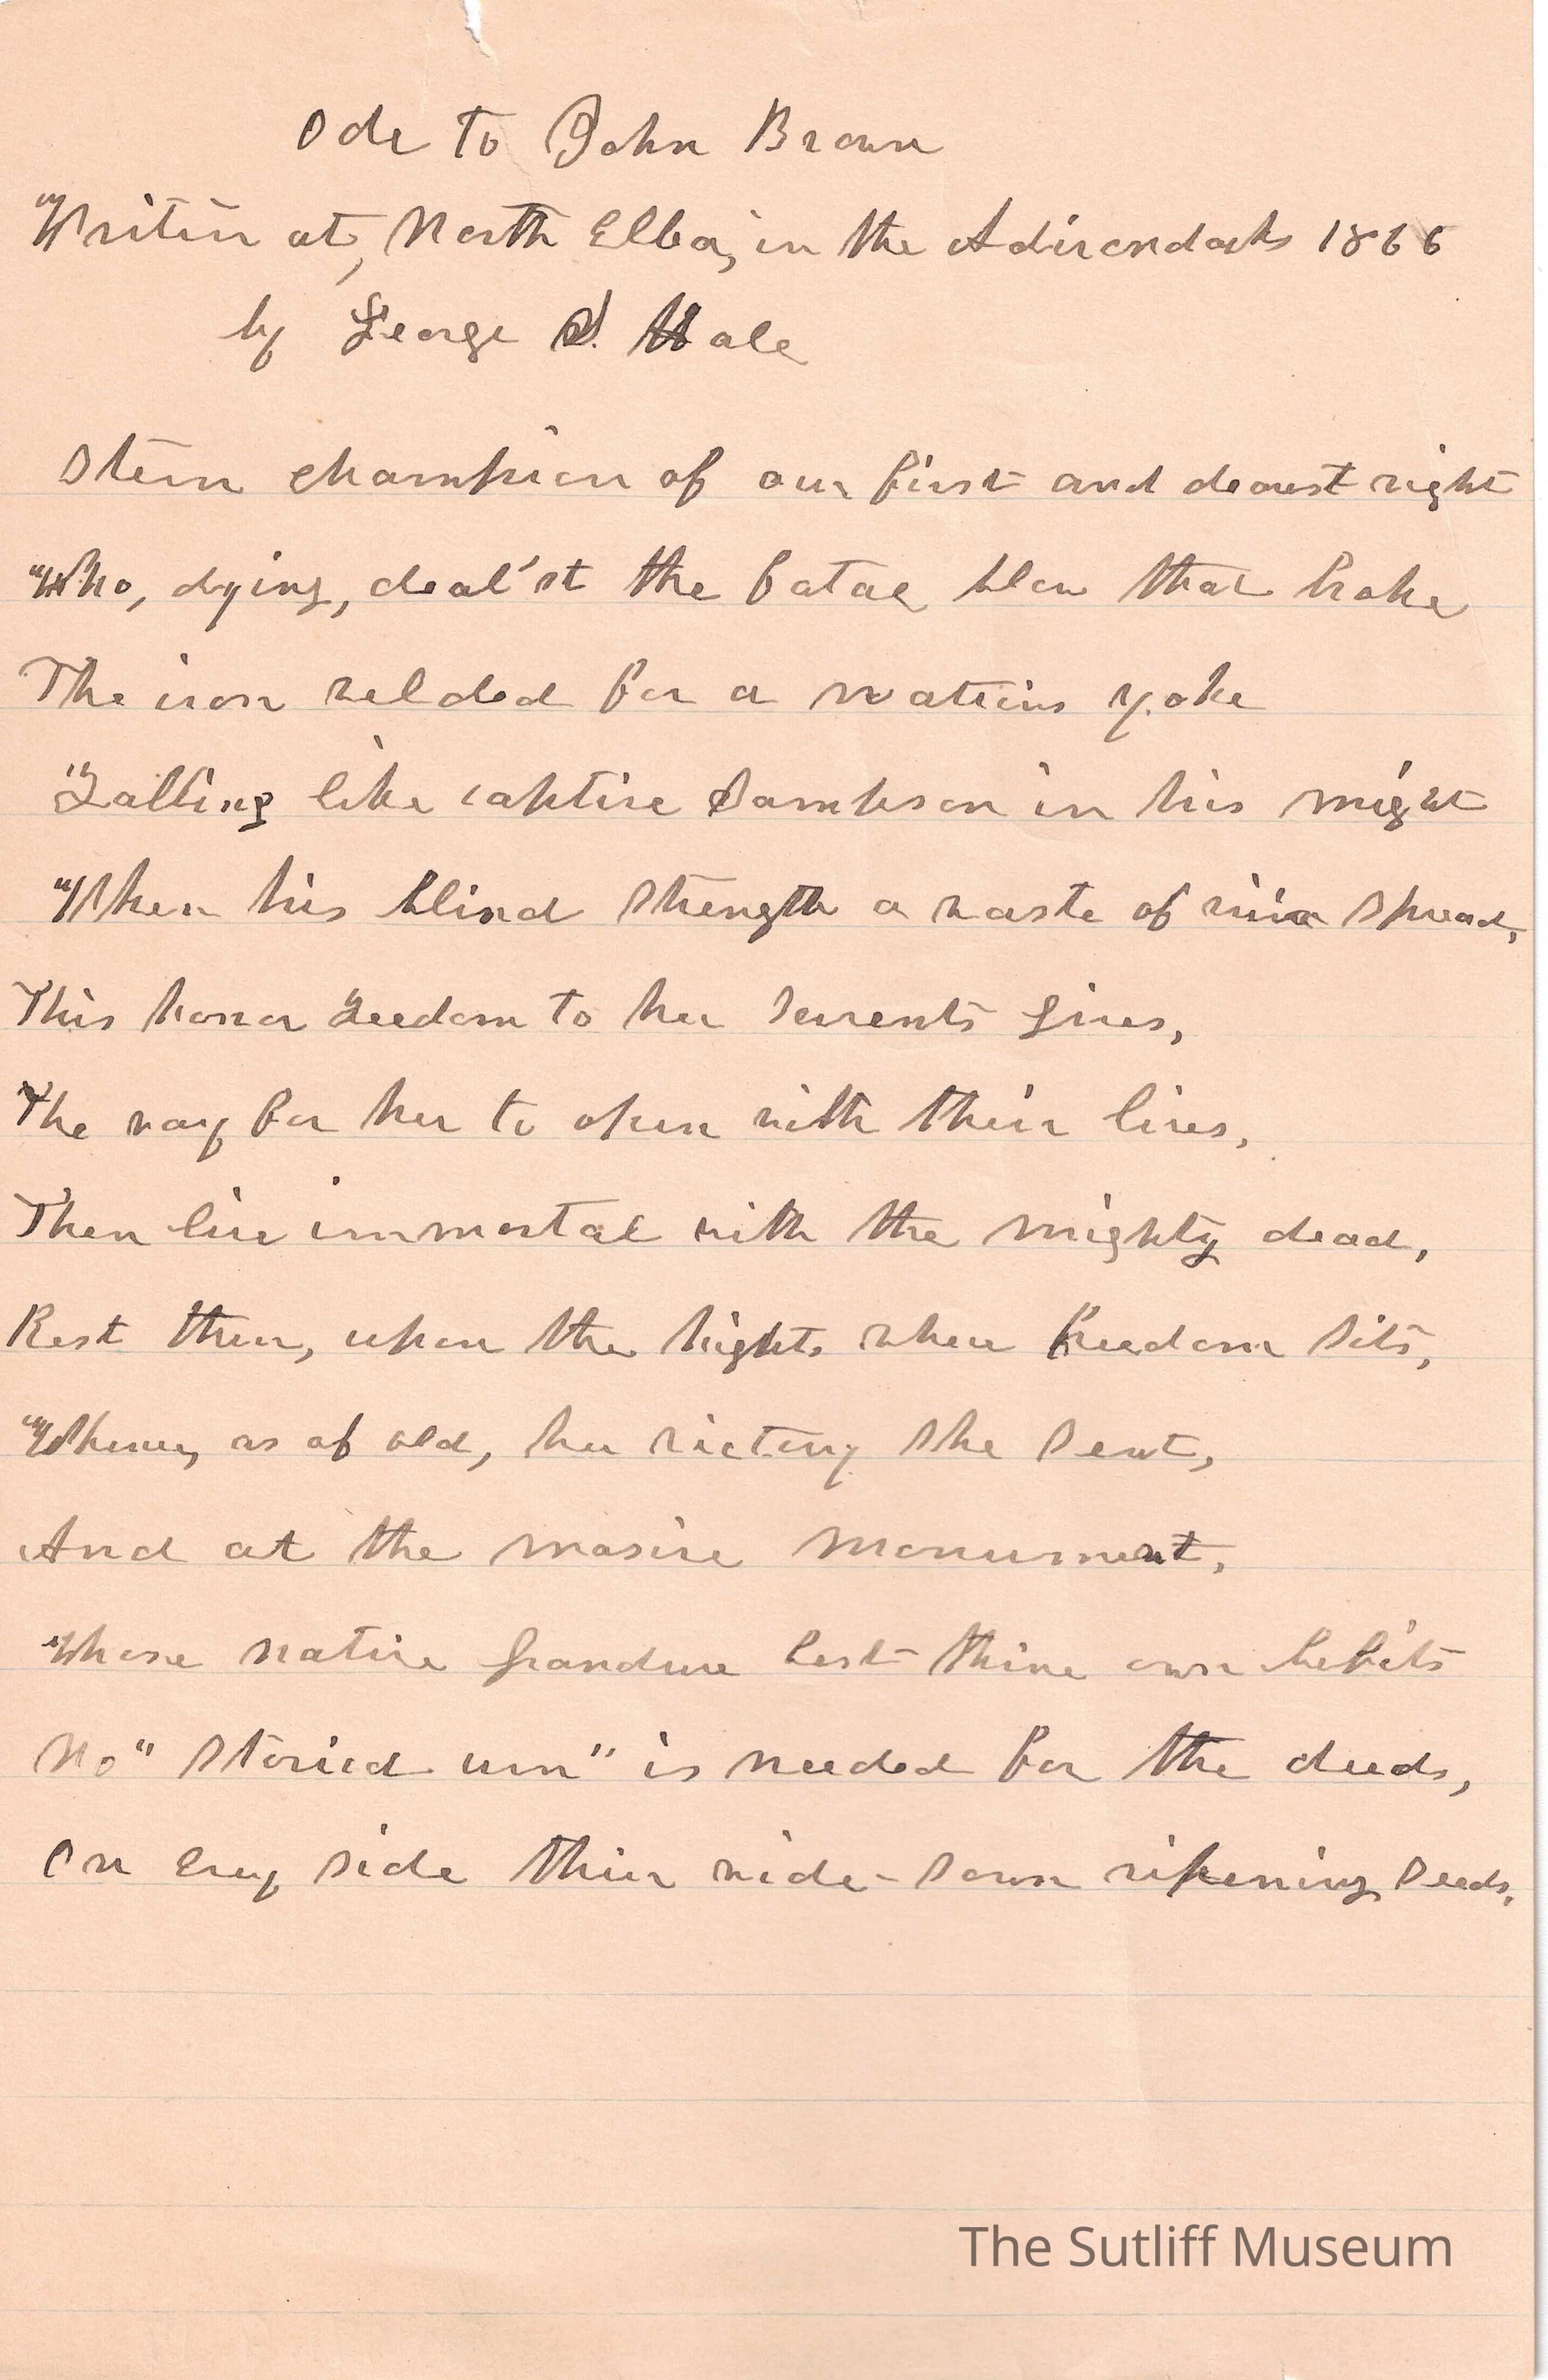 Ode to John Brown
Writin at, North Elba, in the Adirondacks 1866
by George S. Hale
Stern champion of our first and dearest right
Who, dying, deal'st the fatal blow that broke
The iron welded for a nations yoke
Falling like captive Sampson in his might
When his blind strength a waste of ruin spread,
This honor Freedom to her servents gives,
The way for her to open with their lives,
Then live immortal with the mighty dead,
Rest then, upon the hights where freedom sits,
Whence, as of old, her victory she sent,
And at the masive monument,
Whose native grandure best thine own befits
No "storied urn" is needed for the deeds,
On evry side thier wide-sown ripening seeds.
The Sutliff Museum